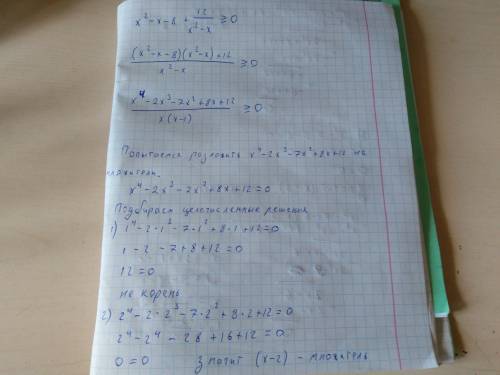 x² - x - 8 + 12/(x² - x) ≥ 0
((x² - x - 8)(x² - x) + 12)/(x² - x) ≥ 0
(x⁴ - 2x³ - 7x² + 8x + 12)/(x(x-1)) ≥ 0
Попытаемся разложить x⁴ - 2x³ - 7x² + 8x + 12 на
множители.
x⁴ - 2x³ - 7x² + 8x + 12 = 0
Подбираем целочисленные решения
1) 1⁴ - 2·1³ - 7·1² + 8·1 + 12 = 0
1 - 2 - 7 + 8 + 12 = 0
12 = 0
не корень
2) 2⁴ - 2·2³ - 7·2² + 8·2 + 12 = 0
2⁴ - 2⁴ - 28 + 16 + 12 = 0
0 = 0 значит (x-2) - множитель